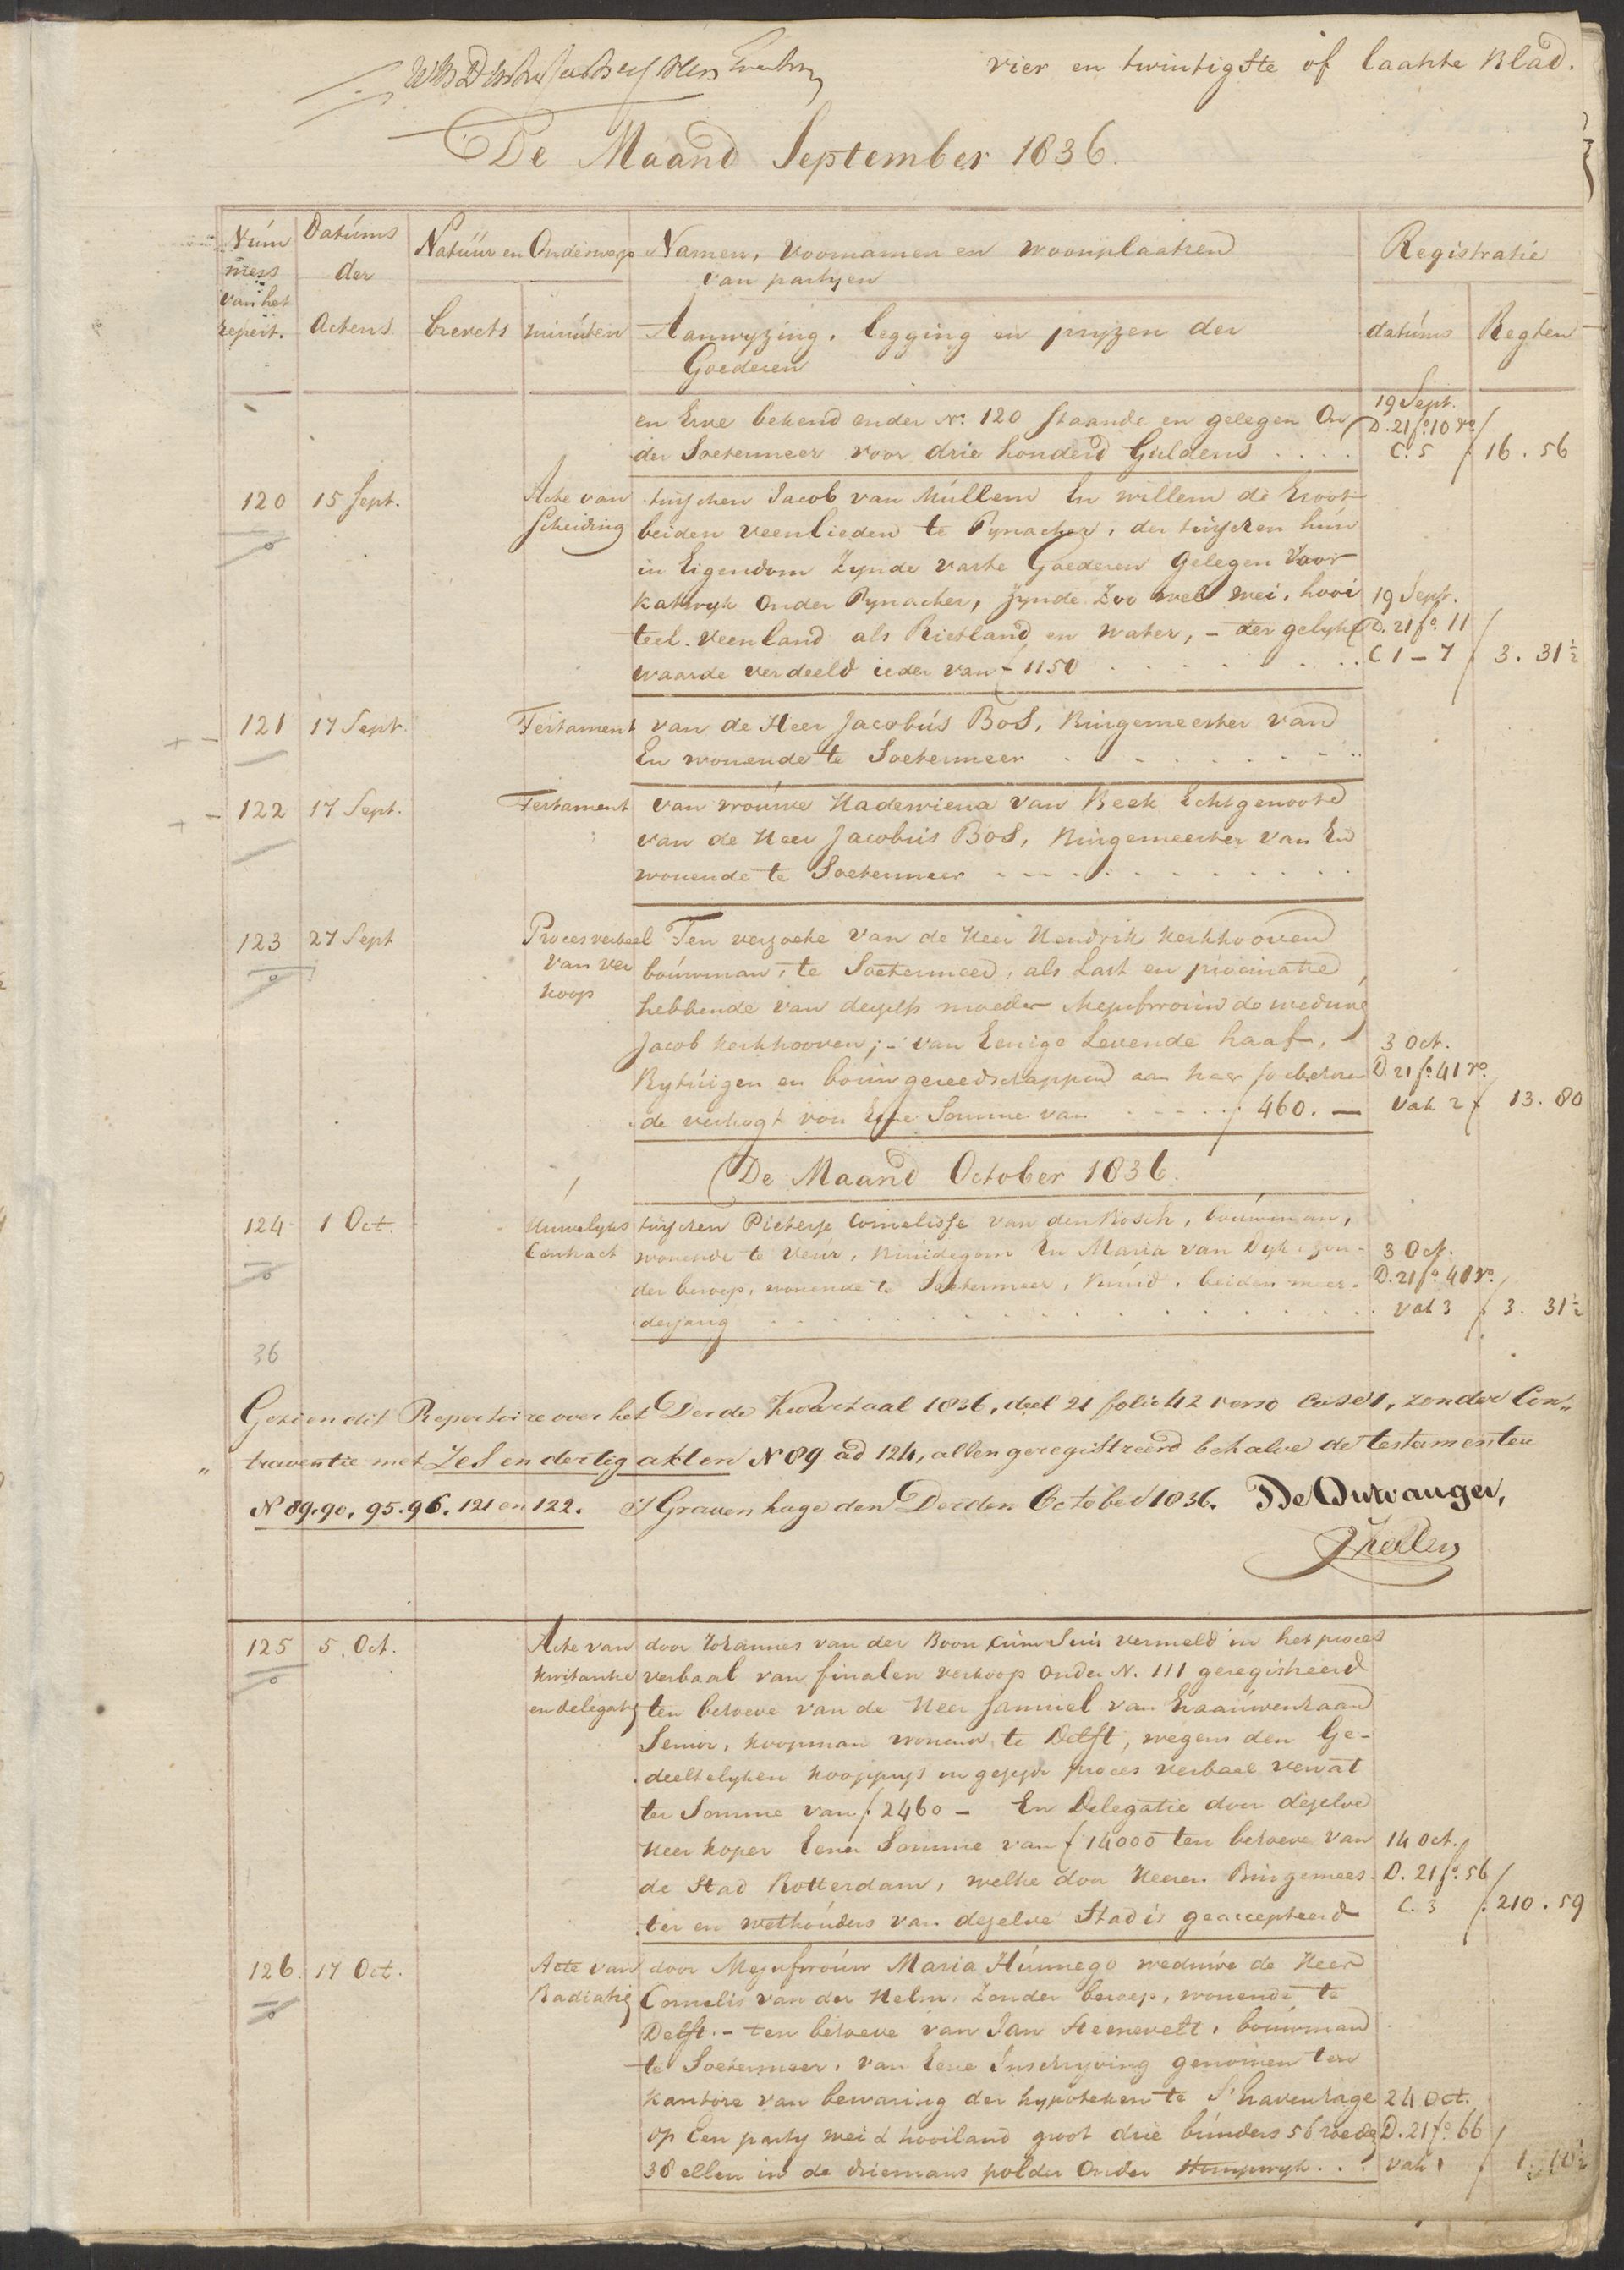 vier en twintigste of laatste Blad.
De Maand September 1836.
Num
mers
van het
repert.
Datums
der
Actens
Natuur en Onderwerp
brevets
minuten
Namen, voornamen en woonplaatsen
van partyen
Aanwyzing, legging en pryzen der
Goederen
Registratie
datums
Regten
en Erve bekend onder No. 120 staande en gelegen On
der Soetermeer voor drie honderd Guldens . . . .
19 Sept.
D. 21 fo. 10 vo.
C. 5
16. 56
120
15 Sept.
Acte van
Scheiding
tusschen Jacob van Mullem En willem de Groot
beiden veenlieden te Pynacker, der tusschen hun
in Eigendom Zynde vaste Goederen Gelegen Voor
Katwyk Onder Pynacker, Zynde Zoo wel wei, hooi
teel-veenland als Rietland en water, - der gelyke
waarde verdeeld ieder van f 1150
19 Sept.
D. 21 fo. 11
C 1 - 7
3. 31½
121
17 Sept.
Testament
van de Heer Jacobus Bos, Burgemeester van
En wonende te Soetermeer
122
17 Sept.
Testament
van vrouwe Hadewiena van Beek Echtgenoote
van de Heer Jacobus Bos, Burgemeester van En
wonende te Soetermeer
123
27 Sept
Proces verbaal
van ver
koop
Ten verzoeke van de Heer Hendrik Kerkhooven
bouwman, te Soetermeer, als Last en procuratie
hebbende van deszelfs moeder Mejufvrouw de weduwe
Jacob Kerkhooven; - van Eenige Levende haaf,
Rytuigen en bouwgereedschappen aan haar toebehoren
de verkogt voor Eene Somme van f 460. —
3 Oct.
D. 21 fo. 41 ro.
Vak 2
13. 80
De Maand October 1836.
124
1 Oct.
Huwelyks
Contract
tusschen Pieterse Cornelisse van den Bosch, bouwman,
wonende te Veur, Bruidegom En Maria van Dyk, zon-
der beroep, wonende te Soetermeer, Bruid, beiden meer-
derjarig
3 Oct.
D. 21 fo. 41 ro.
Vak 3
3. 31½
36
Gezien dit Repertoire over het Derde Kwartaal 1836, deel 21 folio 42 verso Case 1, zonder Con„
„traventie met Zes en dertig akten No 89 ad 124, allen geregistreerd behalve de testamenten
No 89. 90. 95. 96. 121 en 122. S'Gravenhage den Derden October 1836. De Ontvanger,
125
5. Oct.
Acte van
kwitantie
en delegatie
door Johannes van der Boon Cum Suis vermeld in het proces
verbaal van finalen verkoop onder N. 111 geregistreerd
ten behoeve van de Heer Samuel van Graauwenhaan
Senior, koopman wonende te Delft, wegens den Ge-
deeltelyken koopprys in gezegde proces verbaal vervat
ter Somme van f. 2460 - En Delegatie door dezelve
Heer koper Eener Somme van f 14000 ten behoeve van
de Stad Rotterdam, welke door Heeren Burgemees-
ter en wethouders van dezelve Stad is geaccepteerd
14 Oct.
D. 21 fo. 56
C. 3
210. 59
126.
17 Oct.
Acte van
Radiatie
door Mejufvrouw Maria Hunnego weduwe de Heer
Cornelis van der Helm, Zonder beroep, wonende te
Delft. - ten behoeve van Jan Steenevelt, bouwman
te Soetermeer, van Eene Inschryving genomen ten
kantore van bewaring der hypotheken te S'Gravenhage
op Een party wei & hooiland groot drie bunders 56 roede
38 ellen in de driemans polder Onder Stompwyk . .
24 Oct.
D. 21 fo. 66
vak 1
1. 10½